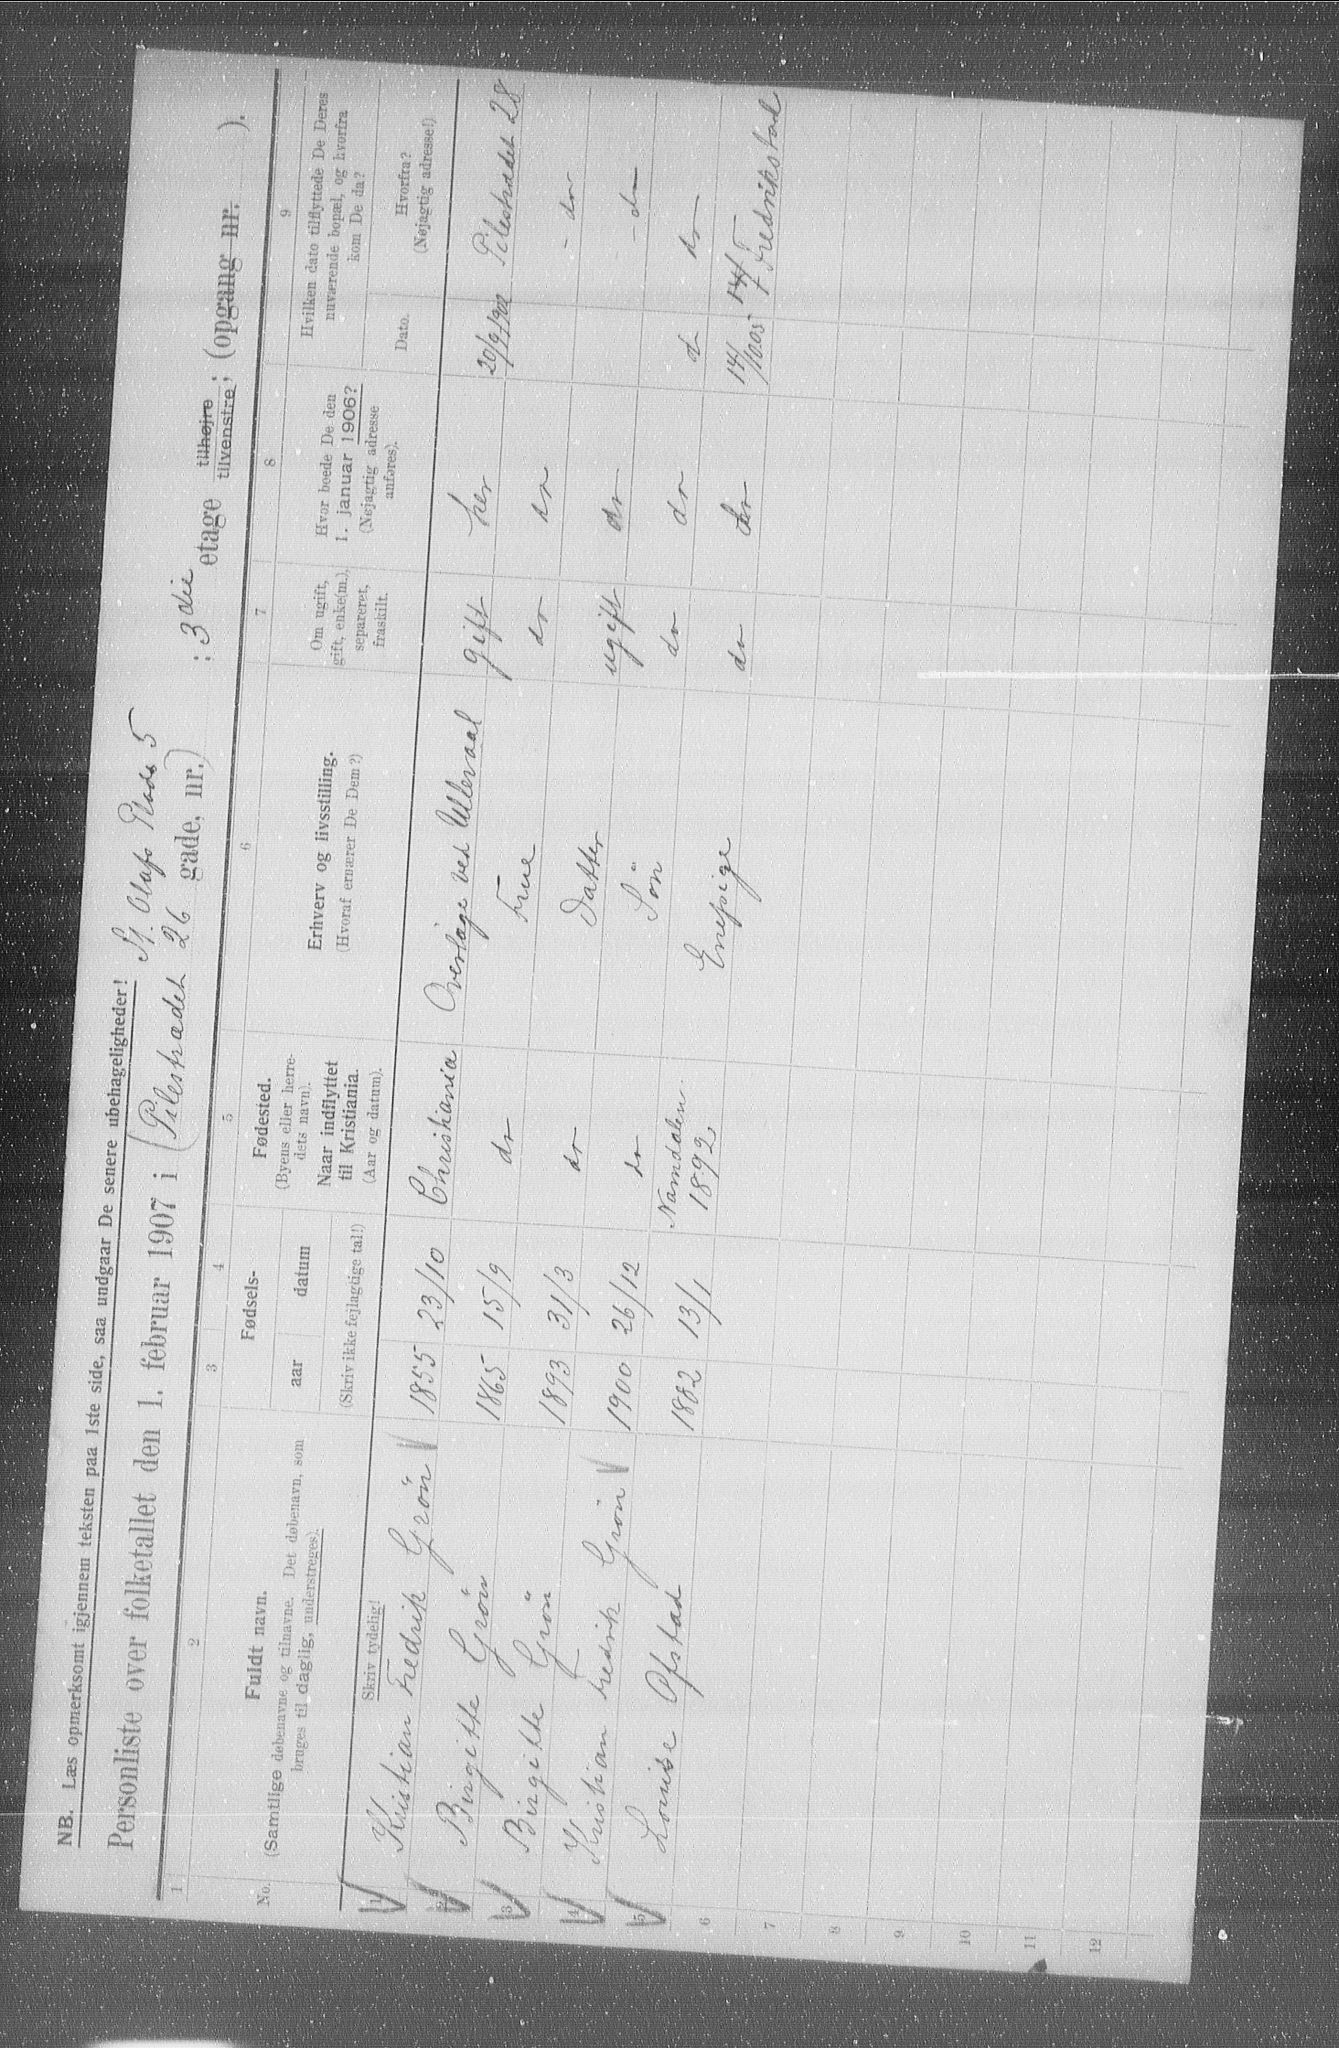 NB. Læs opmerksomt igjennem teksten paa 1ste side, saa undgaar De senere ubehageligheder!
St. Olafs Plads 5
Personliste over folketallet den 1. februar 1907 i (Pilestrædet 26 gade, nr.) : 3die etage tilhøjre tilvenstre; (opgang nr. ).
1 2 3 4 5 6 7 8 9
No.
Fuldt navn.
(Samtlige døbenavne og tilnavne. Det døbenavn, som
bruges til daglig, understreges).
Skriv tydelig!
Fødsels-
aar datum
(Skriv ikke fejlagtige tal!)
Fødested.
(Byens eller herre-
dets navn).
Naar indflyttet
til Kristiania.
(Aar og datum).
Erhverv og livsstilling.
(Hvoraf ernærer De Dem?)
Om ugift,
gift, enke(m.),
separeret,
fraskilt.
Hvor boede De den
1. januar 1906?
(Nøjagtig adresse
anføres).
Hvilken dato tilflyttede De Deres
nuværende bopæl, og hvorfra
kom De da?
Dato.
Hvorfra?
(Nøjagtig adresse!)
1 Kristian Fredrik Grön 1855 23/10 Christiania Overlæge ved Ullevaal gift her 20/9 1902 Pilestrædet 28
2 Birgitte Grön 1865 15/9 do Frue do do - do -
3 Birgitte Grön 1893 31/3 do Datter ugift do - do
4 Kristian Fredrik Grön 1900 26/12 do Sön do do do do
5 Louise Ofstad 1882 13/1 Namdalen 1892. Enepige do do 14/10 05 Fredrikstad
6
7
8
9
10
11
12